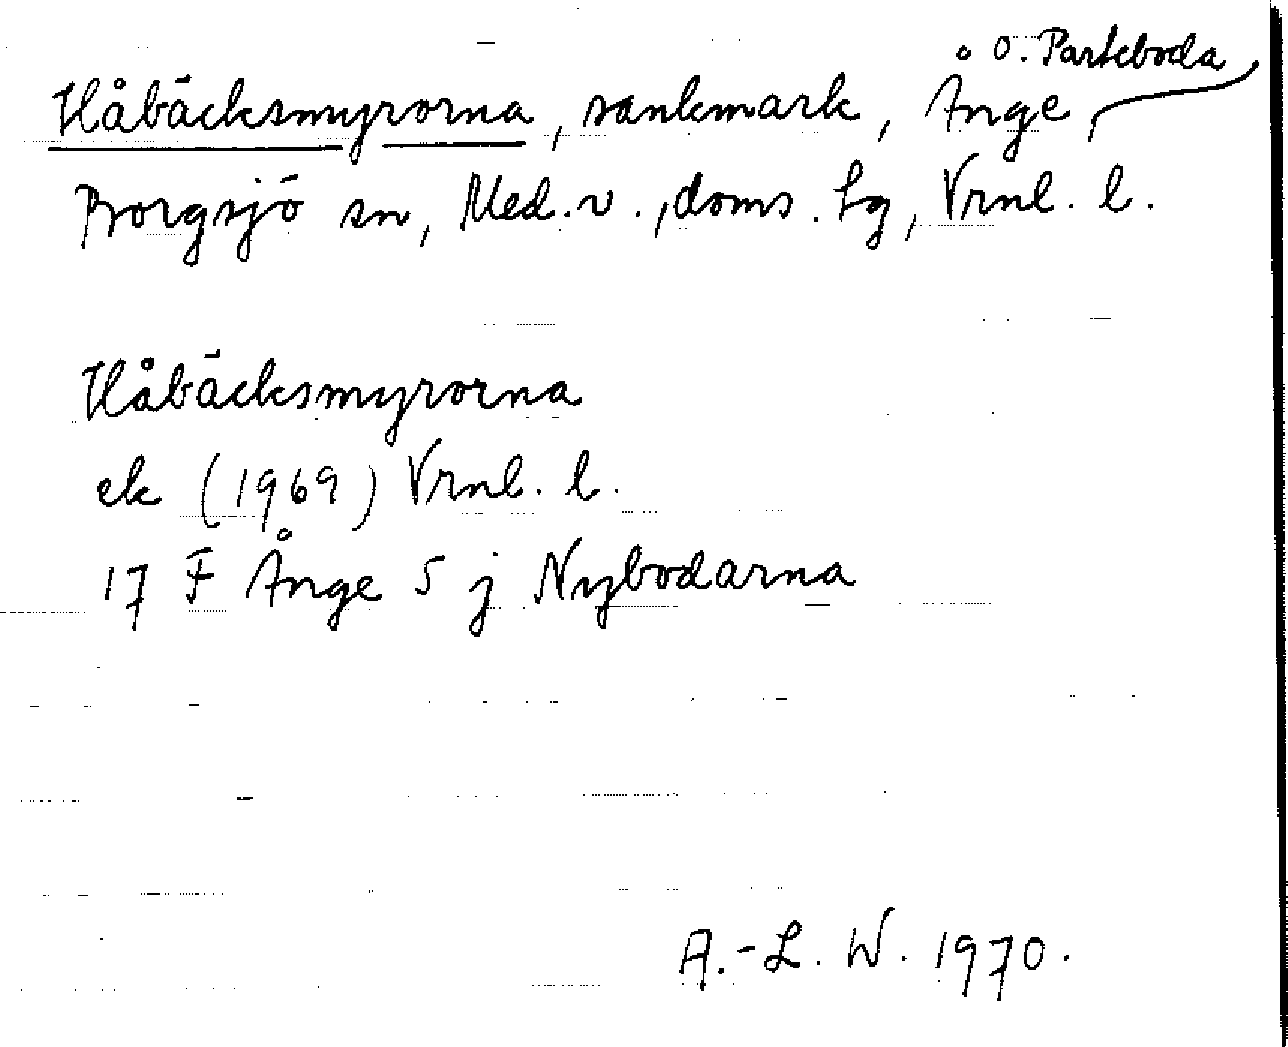 Håbäcksmyrorna, sankmark, Ånge, Ö. Parteboda
Borgsjö sn, Med. v., doms. lg, Vrnl. l.
Håbäcksmyrorna
ek (1969) Vrnl. l.
17 F Ånge 5 j Nybodarna
A.-L. W. 1970.